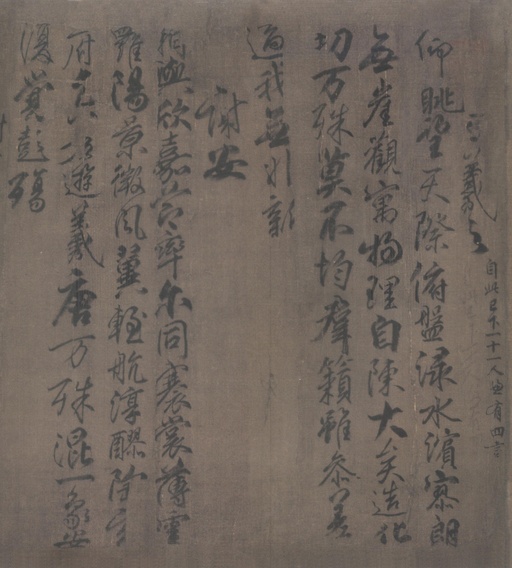 王羲之
自此已下一十一人並有四言
仰眺望天際俯盤淥水濱寥朗
無崖觀寓物理自陳大矣造化
功万殊莫不均羣籟雖參差
適我無非新
謝安
相與欣嘉節率尔同褰裳薄雲
羅陽景微風翼輕航淳醪陶丹
府兀若遊羲唐万殊混一象安
復覺彭殤